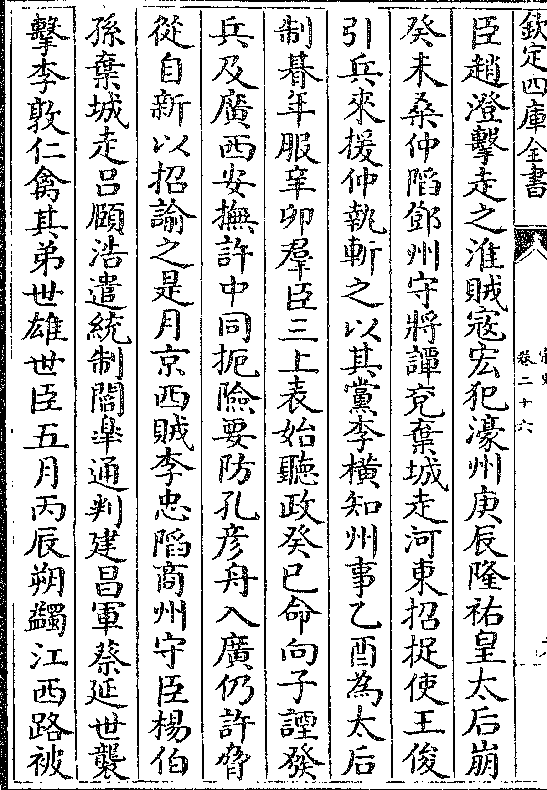 欽定四庫全書
卷二十六
臣趙澄擊走之淮賊寇宏犯濠州庚辰隆祐皇太后崩
癸未桑仲陷鄧州守將譚兖棄城走河東招捉使王俊
引兵來援仲執斬之以其黨李橫知州事乙酉為太后
制朞年服辛卯羣臣三上表始聽政癸巳命向子諲發
兵及廣西安撫許中同扼險要防孔彦舟入廣仍許脅
從自新以招諭之是月京西賊李忠陷商州守臣楊伯
孫棄城走呂頤浩遣統制閻臯通判建昌軍蔡延世襲
擊李敦仁禽其弟世雄世臣五月丙辰朔蠲江西路被